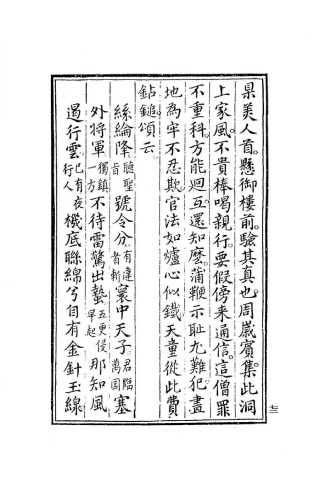 果美人首。懸御樓前。驗其真也。周歲賓集。此洞
上家風。不貴棒喝親行。要假傍來通信。這僧罪
不重科。方能迴互。還知麼。蒲鞭示恥尤難犯。畫
地為牢不忍欺。官法如爐心似鐵。天童從此費
鉆鎚。頌云。
絲綸降聽聖旨號令分有違者斬寰中天子君臨萬国塞
外將軍獨鎮一方不待雷驚出蟄五更侵早起那知風
遏行雲已有夜行人機底聯綿兮自有金針玉線